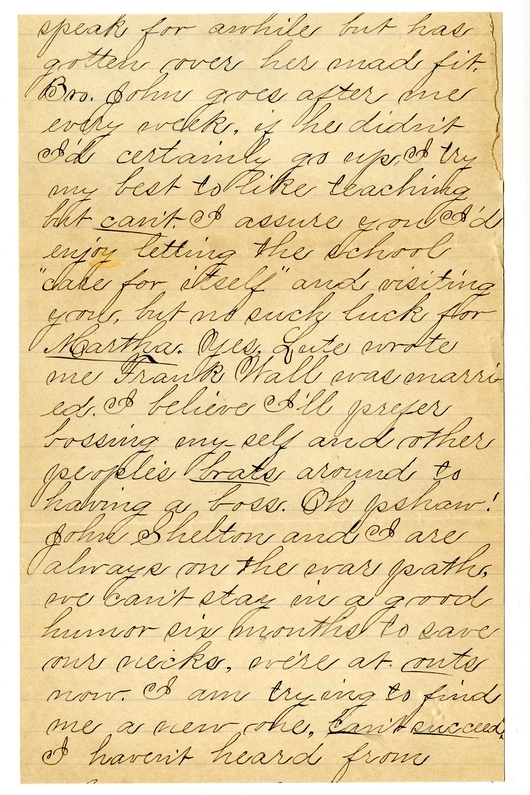 speak for awhile but has
gotten over her mad fit.
Bro. John goes after me
every week, if he didn't
I'd certainly go up, I try
my best to like teaching
but can't. I assure you I'd
enjoy letting the school
"care for itself" and visiting
you, but no such luck for
Martha. Yes, Lute wrote
me Frank Wall was marri-
ed. I believe I'll prefer
bossing my self and other
people's brats around to
having a boss. Oh pshaw!
John Shelton and I are
always on the war path,
we can't stay in a good
humor six months to save
our necks, we're at outs
now. I am trying to find
me a new one, can't succeed,
I haven't heard from